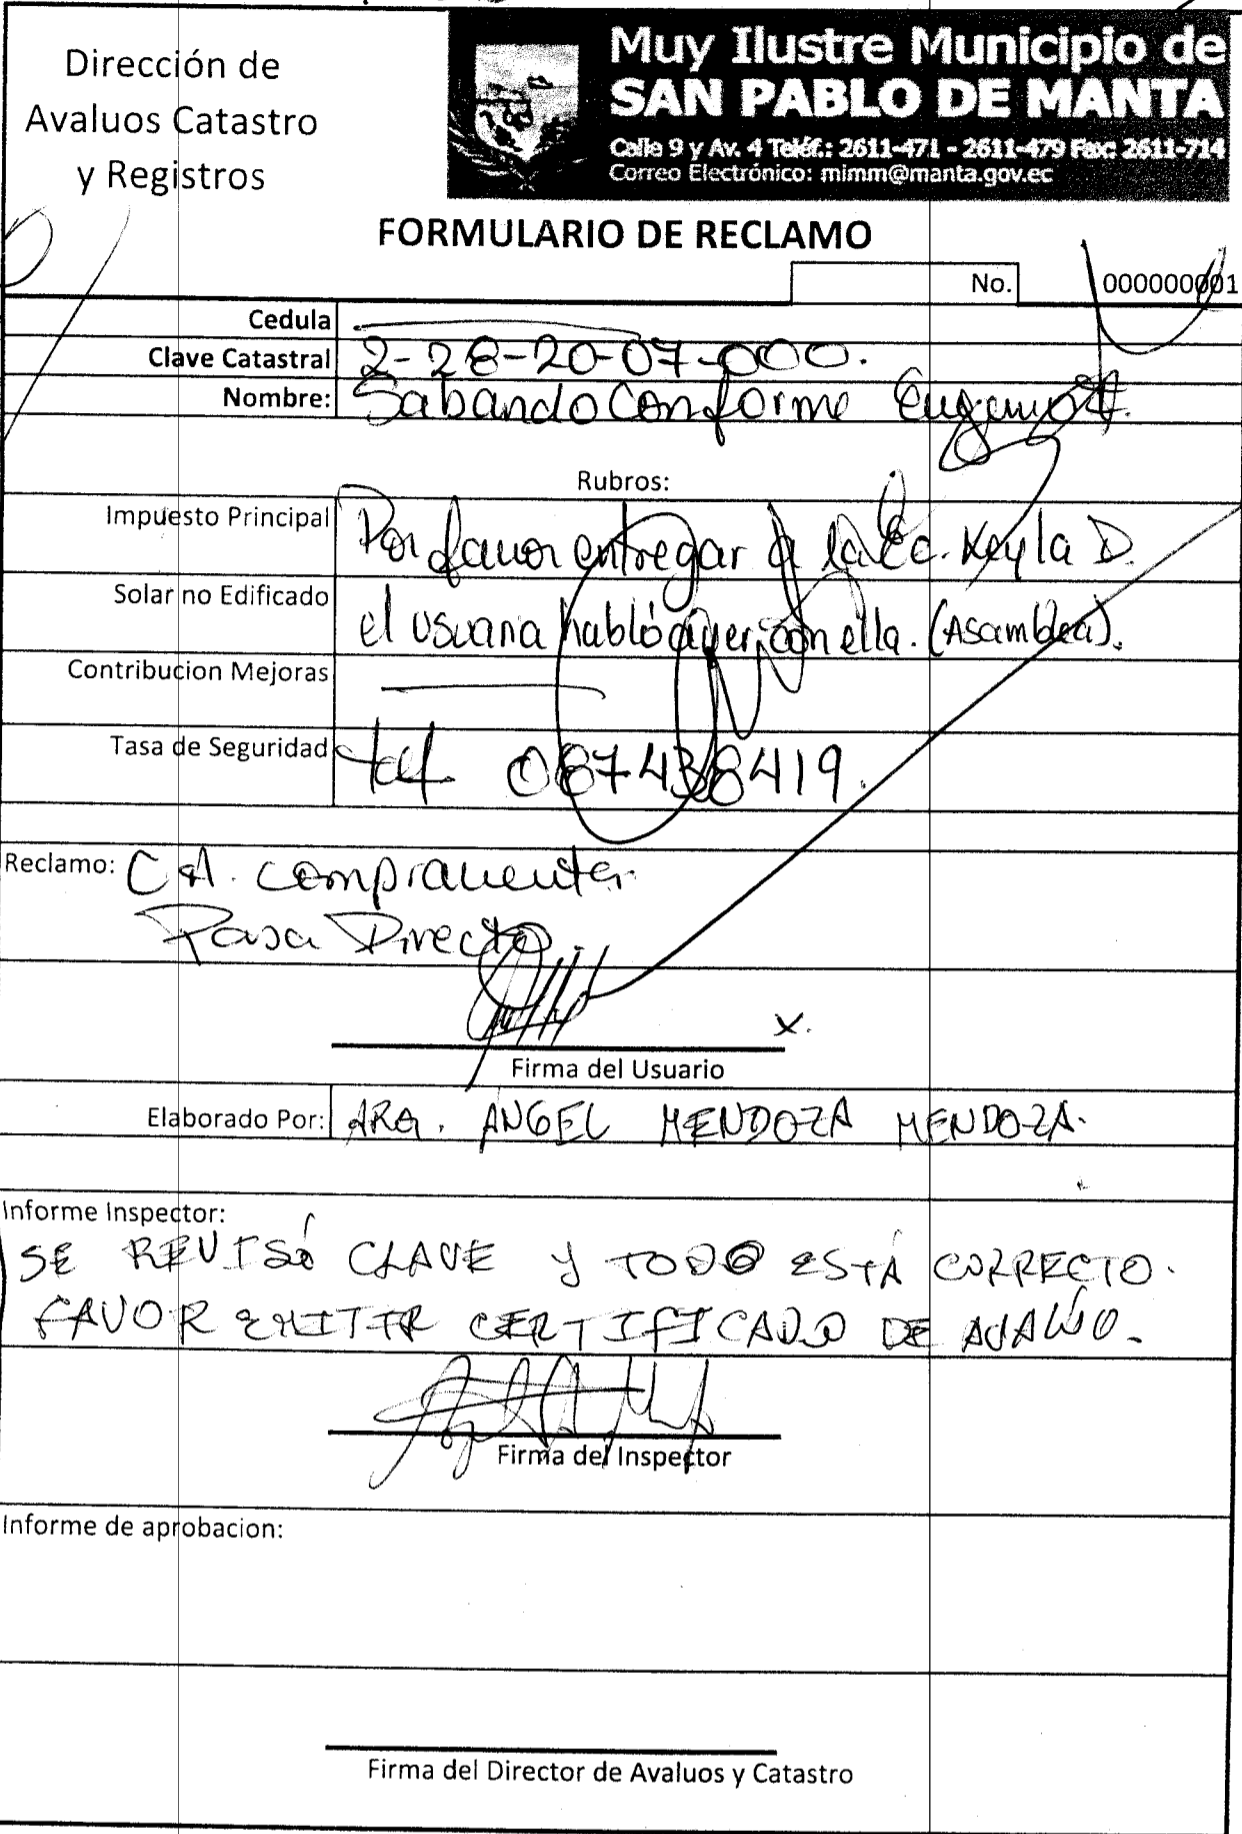 Dirección de
Avaluos Catastro
y Registros
Muy Ilustre Municipio de
SAN PABLO DE MANTA
Calle 9 y Av. 4 Teléf.: 2611-471 - 2611-479 Fax: 2611-714
Correo Electrónico: mimm@manta.gov.ec
FORMULARIO DE RECLAMO
No. 000000001
Cedula
Clave Catastral 2-28-20-07-000.
Nombre: Sabando Conforme Eugenio
Rubros:
Impuesto Principal Por favor entregar a la Ec. Keyla D.
Solar no Edificado el usuana habló ayer con ella. (Asamblea).
Contribucion Mejoras
Tasa de Seguridad tel 087438419.
Reclamo: CA. compraventa
Pasa Directo.
x.
Firma del Usuario
Elaborado Por: ARQ. ANGEL MENDOZA MENDOZA.
Informe Inspector:
SE REVISÓ CLAVE Y TODO ESTÁ CORRECTO.
FAVOR EMITIR CERTIFICADO DE AVALÚO.
Firma del Inspector
Informe de aprobacion:
Firma del Director de Avaluos y Catastro